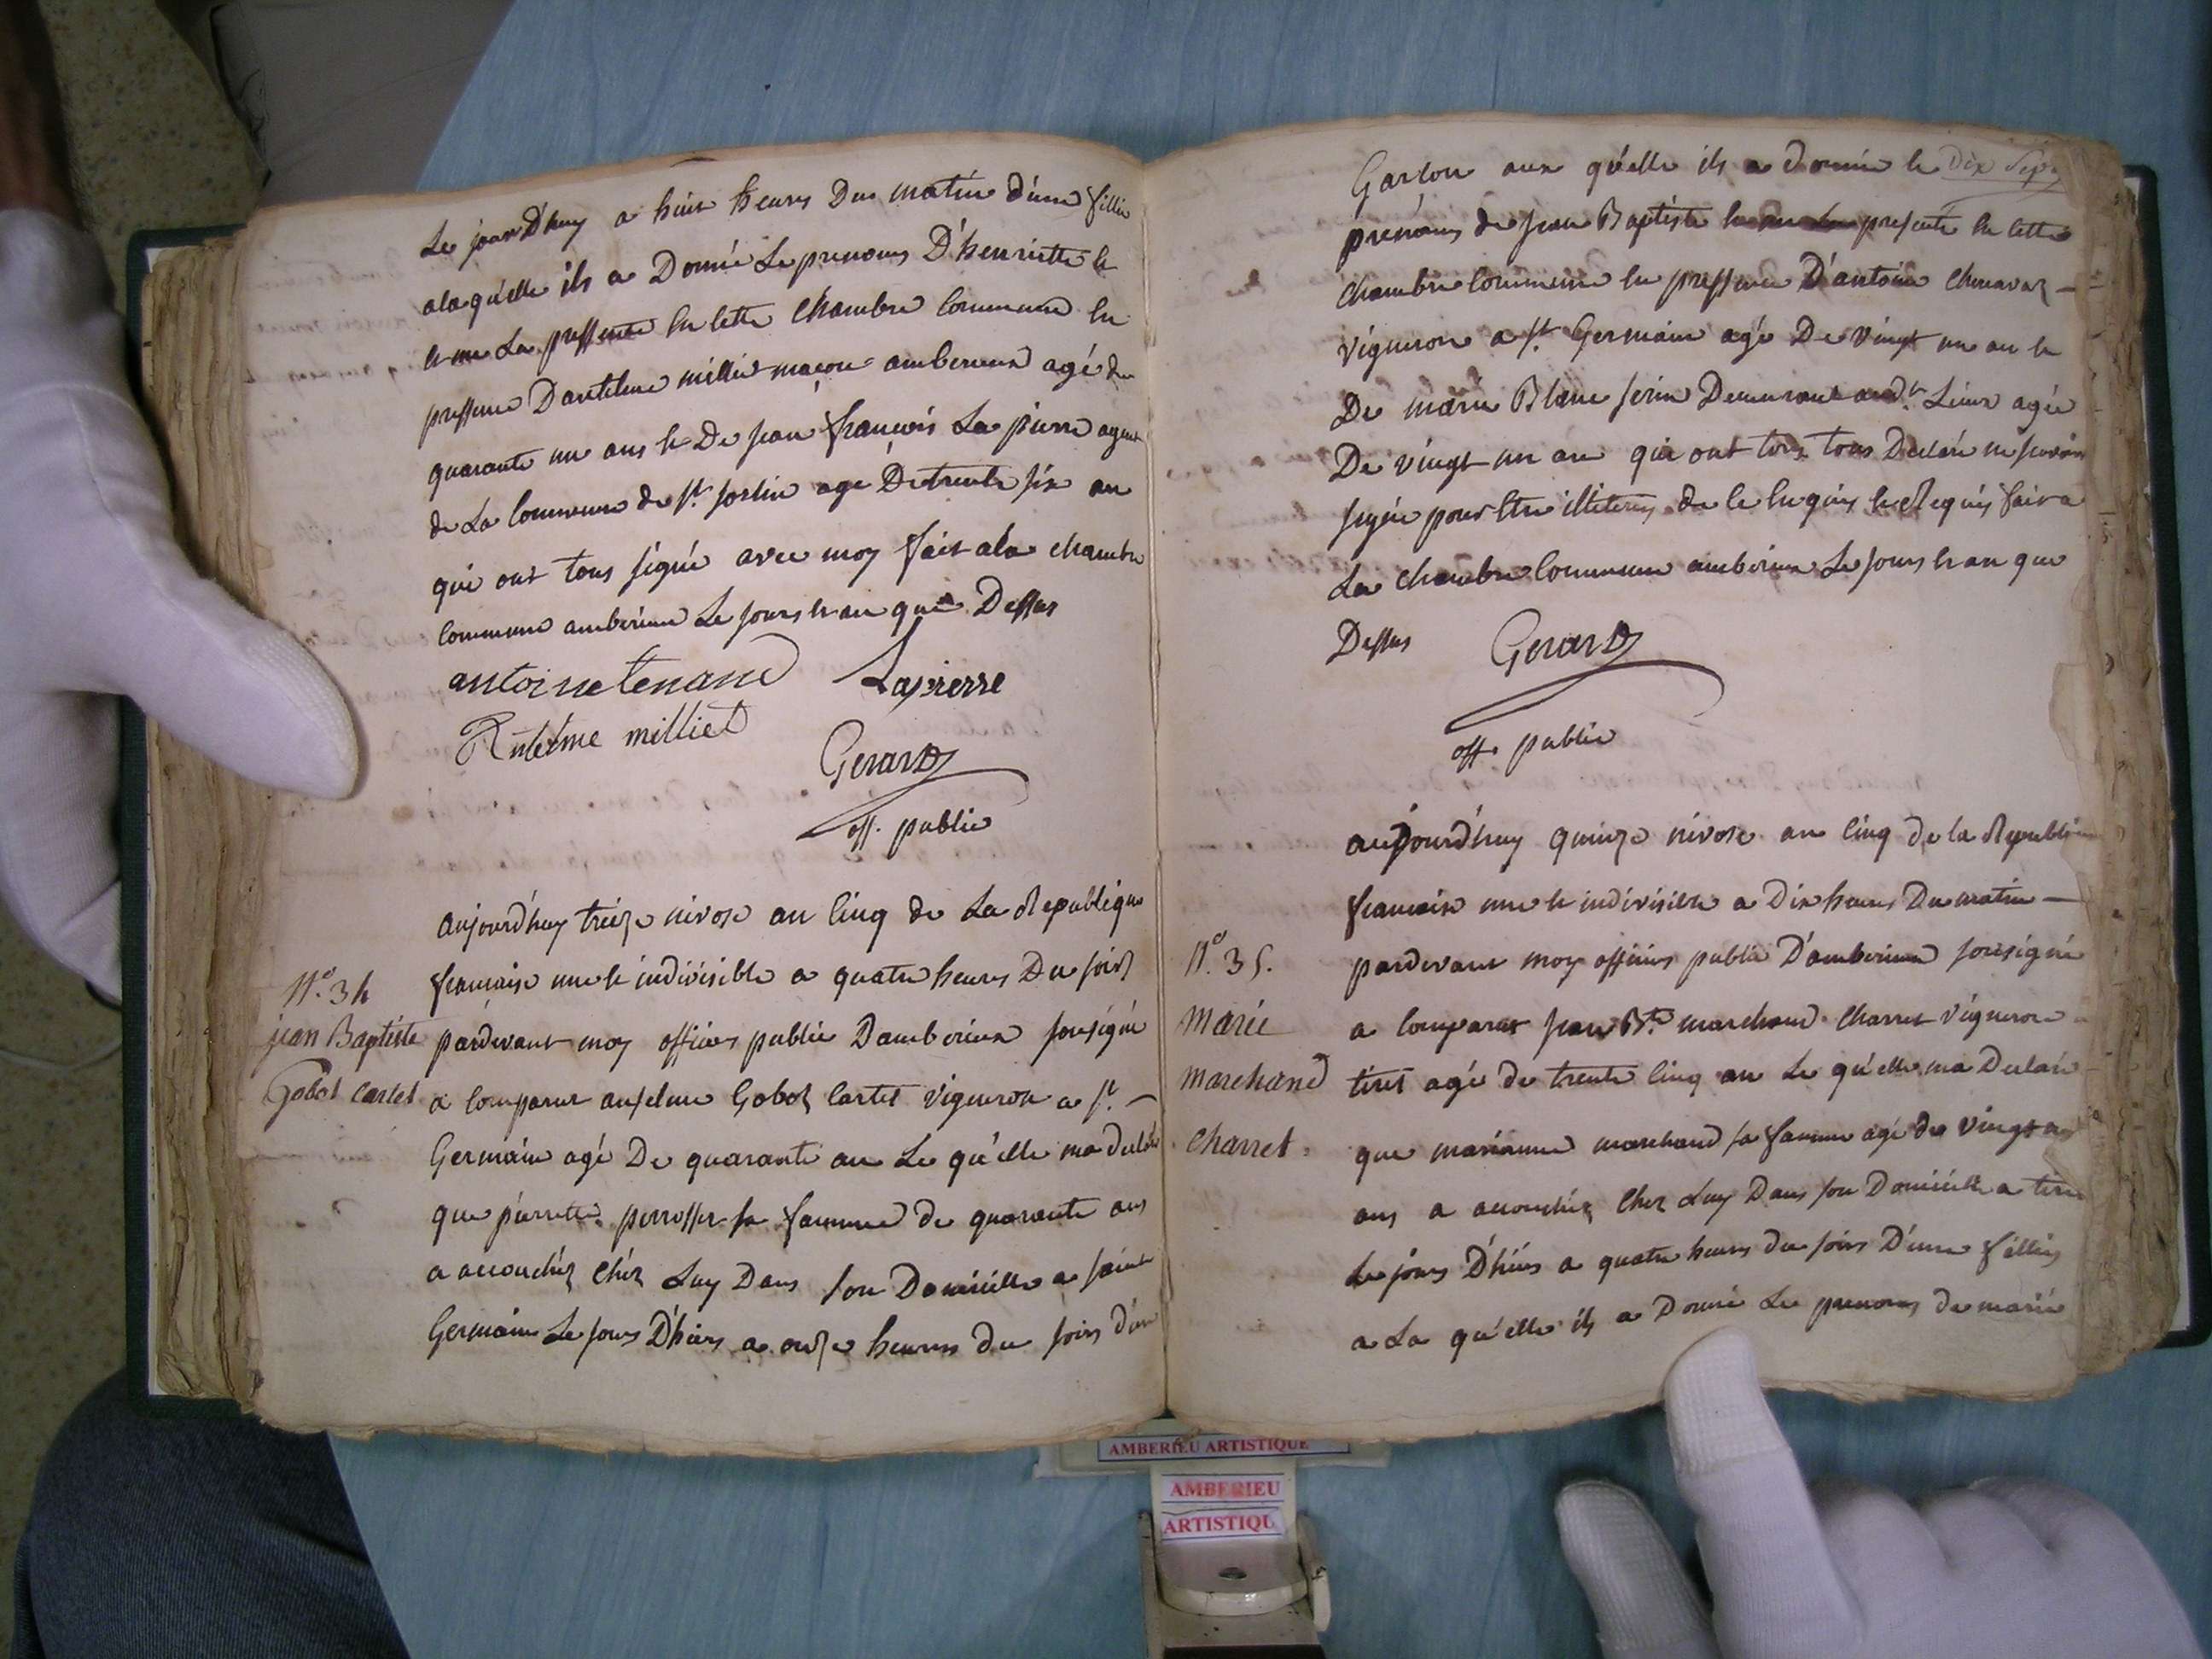 Le jourd'huy a huit heures Du matin d'une fillie
alaqu'elle ils a Donné Le prenoms D'henriette le
pressence Dantelme milliet maçon amberieux agé de
quarante un ans & De jean françois La pierre agent
de La Commune de St. sorlin age De trente six an
qui ont tous signé avec moy fait ala chambre
Commune amberieux Le jours & an que Dessus
antoine tenand Lapierre
Antelme milliet
Gerard
off. public
aujourd'huy treize nivose an Cinq de La Republique
N°. 34 francaise une & indivisible a quatre heures Du soir
jean Baptiste pardevant moy officier public Damberieux sousigné
Gobot Cartet a Comparut anselme Goboz Cartet vigneron a St. —
Germain agé De quarante an Le qu'elle ma declaré
que pierrette perrosset sa famme de quarante ans
a accouchéz chéz Luy Dans son Domicille a saint
Germain Le jours D'hiers a onze heures du soirs d'un
Garson aux qu'elle ils a donné le Dix Sept
prenoms de jean Baptiste presente en cette
chambre Commune en pressence D'antoine chenavaz —
vigneron a St. Germain agé De vingt un an &
De marie Blanc serin Demeurant audt. Lieux agée
De vingt un an qui ont tous Declaré ne scavoir
signé pour être illiterés de ce enquis & Requis fait a
La chambre Commune amberieux Le jours & an que
Dessus Gerard
off. public
aujourd'huy quinze nivose an Cinq de la Republique
francaise une & indivisible a Dix heures Du matin —
N°. 35. pardevant moy officier public D'amberieux sousigné
Marie a Comparut jean Bte. marchand Charret vigneron
Marchand tiret agé de trente Cinq an Le qu'elle ma Declaré
Charret. que marianne marchand sa famme agé de vingt
ans a accouchéz Chez Luy Dans son Domicille a tiret
Le jours D'hiers a quatre heures du soirs D'une fillies
a La qu'elle ils a Donné Le prenoms de marie
AMBERIEU ARTISTIQUE
AMBERIEU
ARTISTIQU